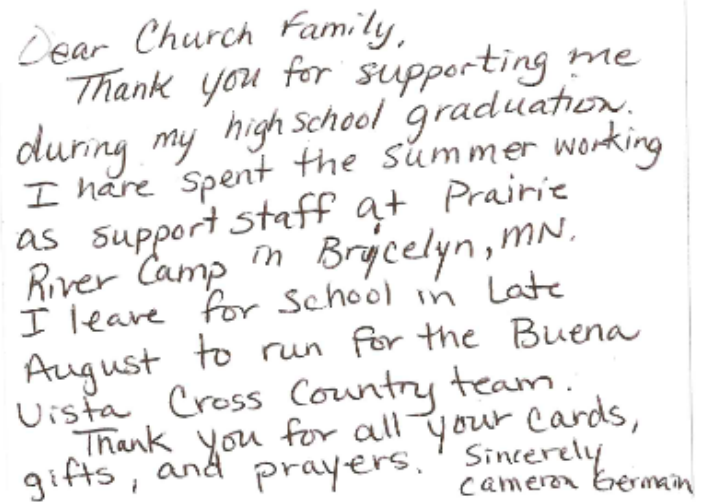 Dear Church Family,
Thank you for supporting me
during my high school graduation.
I have spent the summer working
as support staff at Prairie
River Camp in Brycelyn, MN.
I leave for school in Late
August to run for the Buena
Vista Cross Country team.
Thank you for all your cards,
gifts, and prayers. Sincerely
Cameron Germain